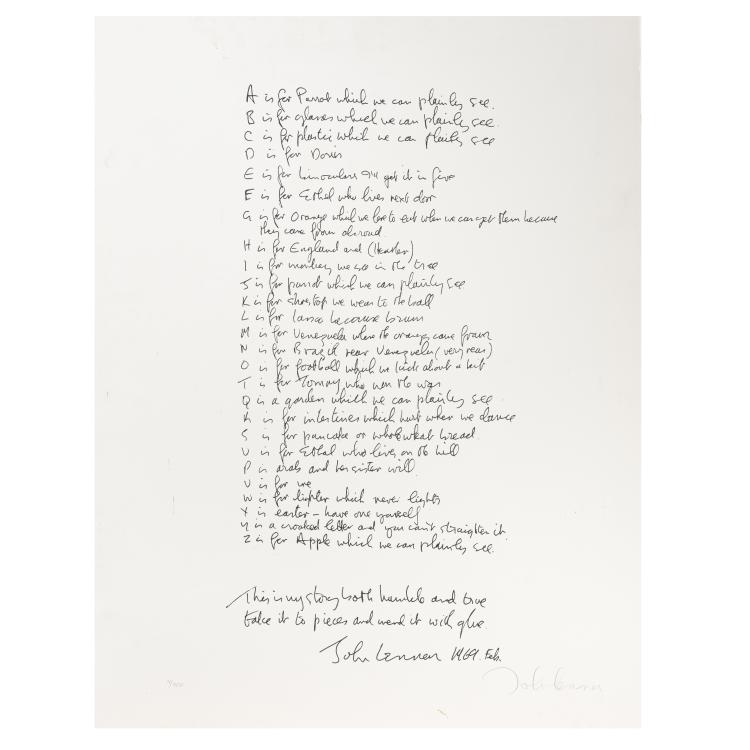 A is for Parrot which we can plainly see.
B is for glasses which we can plainly see.
C is for plastic which we can plainly see
D is for Doris
E is for binoculars I'll get it in five
F is for Ethel who lives next door
G is for Orange which we love to eat when we can get them because
they come from abroad.
H is for England and (Heather)
I is for monkey we see in the tree
J is for parrot which we can plainly see
K is for shoetop we wear to the ball
L is for because brown
M is for Venezuela where the oranges come from
N is for Brazil near Venezuela (very near)
O is for football which we kick about a bit
T is for Tommy who won the war
Q is a garden which we can plainly see
R is for intestines which hurt when we dance
S is for pancake or whole wheat bread.
U is for Ethel who lives on the hill
P is arab and her sister will
V is for me
W is for lighter which never lights
X is easter - have one yourself
Y is a crooked letter and you can't straighten it
Z is for Apple which we can plainly see.
This is my story both humble and true
take it to pieces and mend it with glue.
John Lennon 1969. Feb.
John Lennon